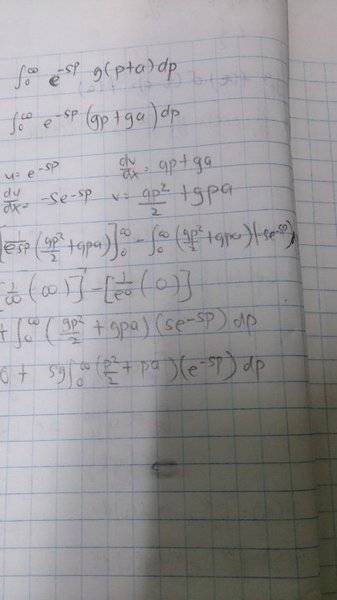 ∫₀^∞ e^-sp g(p+a) dp
∫₀^∞ e^-sp (gp+ga) dp
u = e^-sp dv/dx = gp+ga
du/dx = -se^-sp v = gp²/2 + gpa
[1/e^sp (gp²/2 + gpa)]₀^∞ - ∫₀^∞ (gp²/2 + gpa)(-se^-sp)
[1/∞ (∞)] - [1/e^0 (0)]
+ ∫₀^∞ (gp²/2 + gpa)(se^-sp) dp
0 + sg∫₀^∞ (p²/2 + pa)(e^-sp) dp